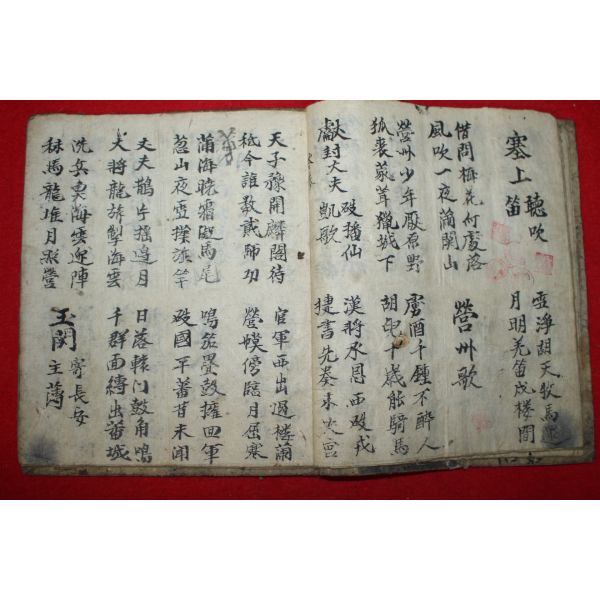 塞上聽吹笛
雪淨胡天牧馬還
月明羌笛戍樓間
借問梅花何處落
風吹一夜滿関山
營州歌
營州少年厭原野
狐裘蒙茸獵城下
虜酒千鍾不醉人
胡兒十歲能騎馬
獻封大夫破播仙凱歌
漢將承恩西破戎
捷書先奏未央宮
天子豫開麟閣待
秪今誰數貳師功
官軍西出過樓蘭
營幙傍臨月窟寒
蒲海曉霜凝馬尾
葱山夜雪撲旌竿
鳴笳疊鼓擁回軍
破國平蕃昔未聞
丈夫鵲印搖邊月
大將龍旂掣海雲
日落轅門鼓角鳴
千群面縛出蕃城
洗兵魚海雲迎陣
秣馬龍堆月照營
玉関寄長安主簿